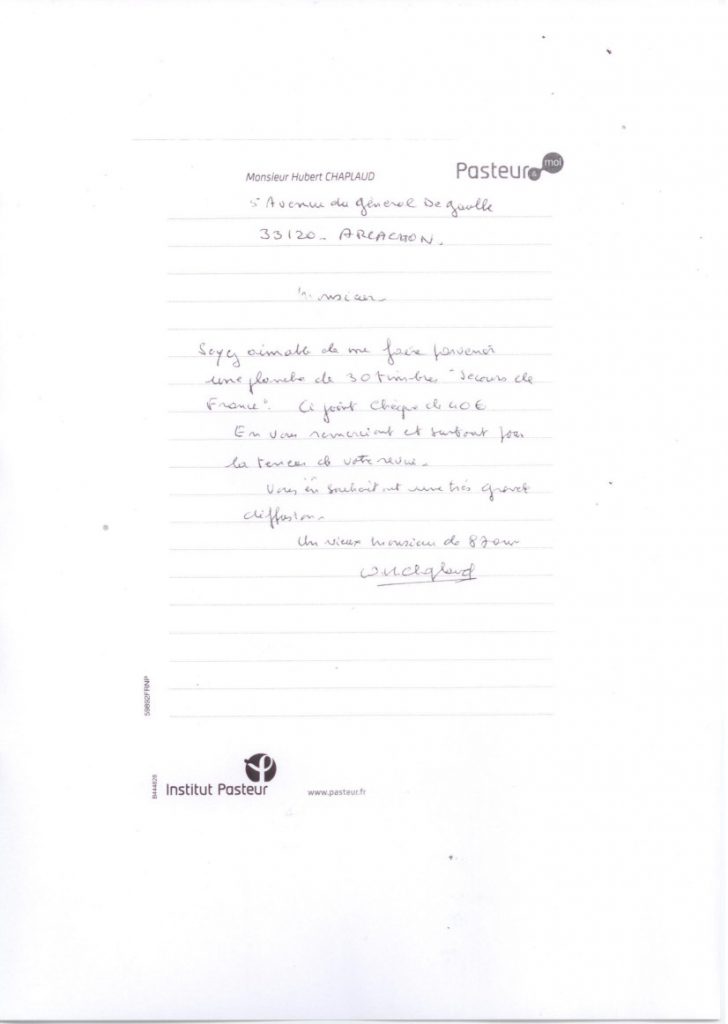 Monsieur Hubert CHAPLAUD
Pasteur & moi
5 Avenue du général De gaulle
33120 - ARCACHON.
Monsieur
Soyez aimable de me faire parvenir
une planche de 30 timbres "Secours de
France". Ci joint chèque de 40 €
En vous remerciant et surtout pour
la teneur de votre revue.
Vous en souhaitant une très grande
diffusion.
Un vieux Monsieur de 87 ans
59892FRNP
B444828
Institut Pasteur
www.pasteur.fr